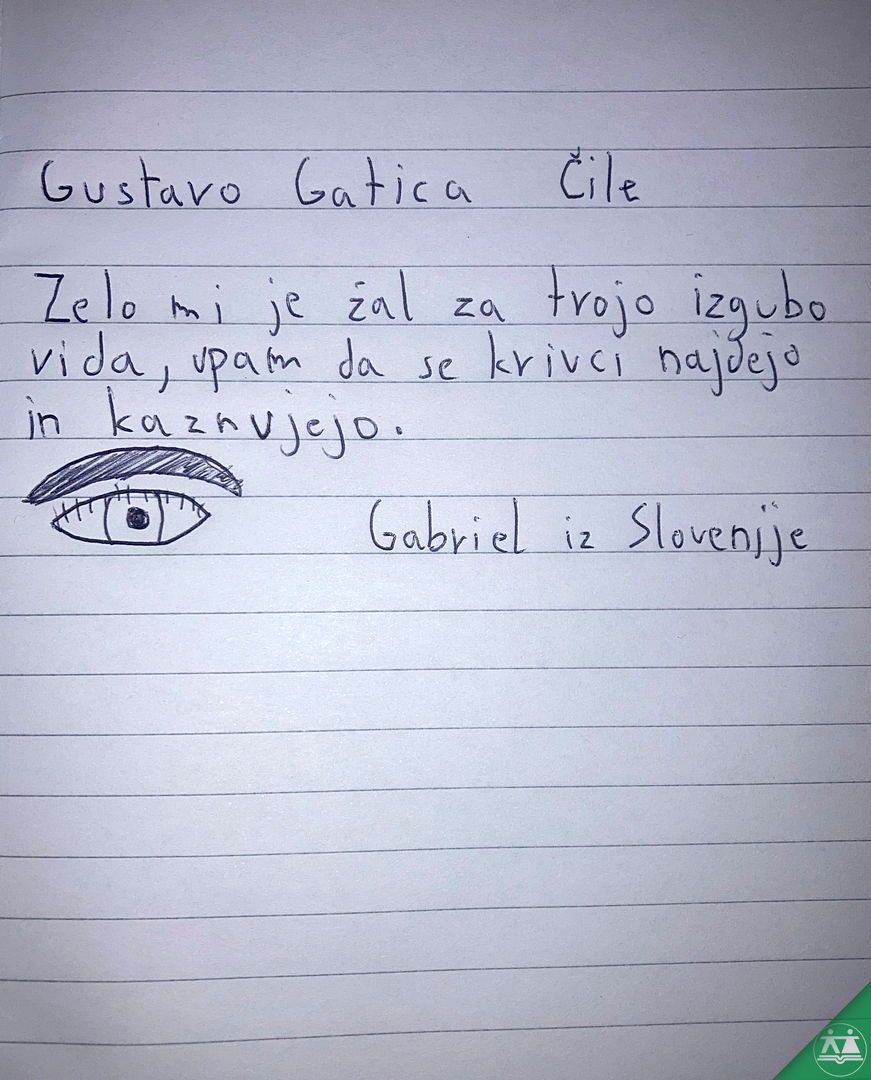 Gustavo Gatica Čile
Zelo mi je žal za trojo izgubo
vida, upam da se krivci najdejo
in kaznujejo.
Gabriel iz Slovenije